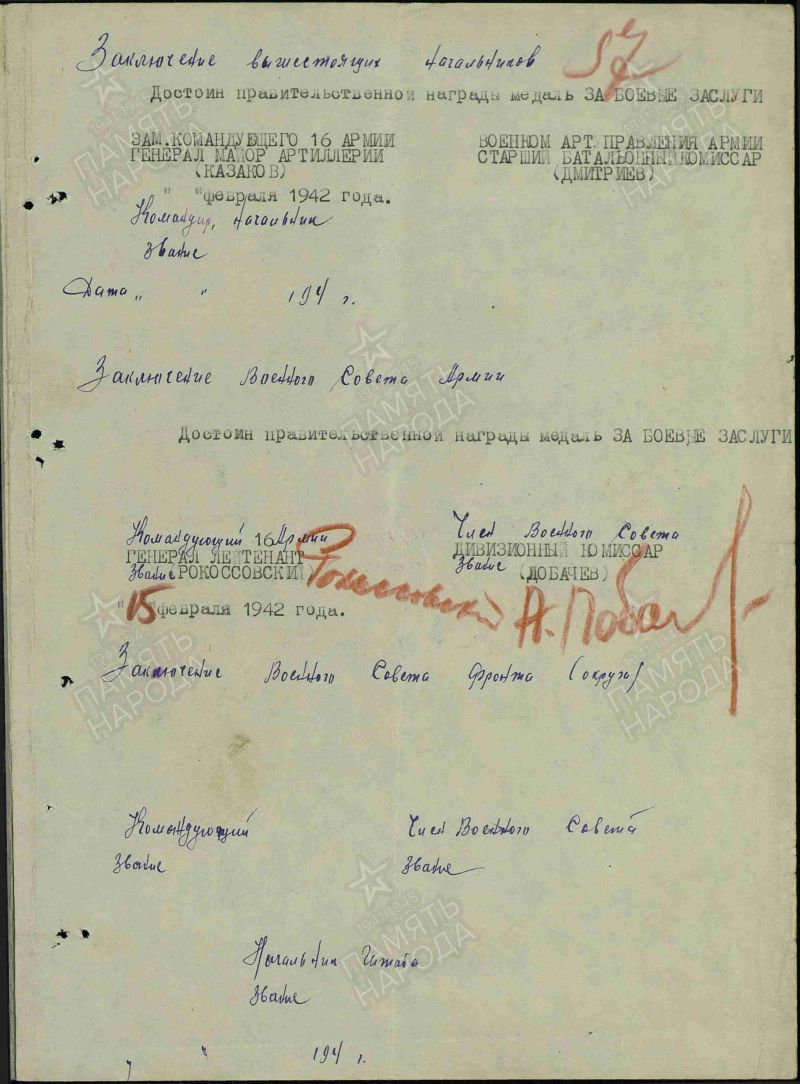 Заключение вышестоящих начальников
Достоин правительственной награды медаль ЗА БОЕВЫЕ ЗАСЛУГИ
ЗАМ.КОМАНДУЮЩЕГО 16 АРМИИ
ГЕНЕРАЛ МАЙОР АРТИЛЛЕРИИ
(КАЗАКОВ)
ВОЕНКОМ АРТ.ПРАВЛЕНИЯ АРМИИ
СТАРШИЙ БАТАЛЬОННЫЙ КОМИССАР
(ДМИТРИЕВ)
" " февраля 1942 года.
Командир, начальник
Звание
Дата „ " 194 г.
Заключение Военного Совета Армии
Достоин правительственной награды медаль ЗА БОЕВЫЕ ЗАСЛУГИ
Командующий 16 Армии
ГЕНЕРАЛ ЛЕЙТЕНАНТ
Звание (РОКОССОВСКИЙ) Рокоссовский
Член Военного Совета
ДИВИЗИОННЫЙ КОМИССАР
Звание (ЛОБАЧЕВ)
А. Лобачев
"15" февраля 1942 года.
Заключение Военного Совета Фронта (округа)
Командующий
Звание
Член Военного Совета
Звание
Начальник Штаба
Звание
„ " 194 г.
ПАМЯТЬ НАРОДА
1941-1945